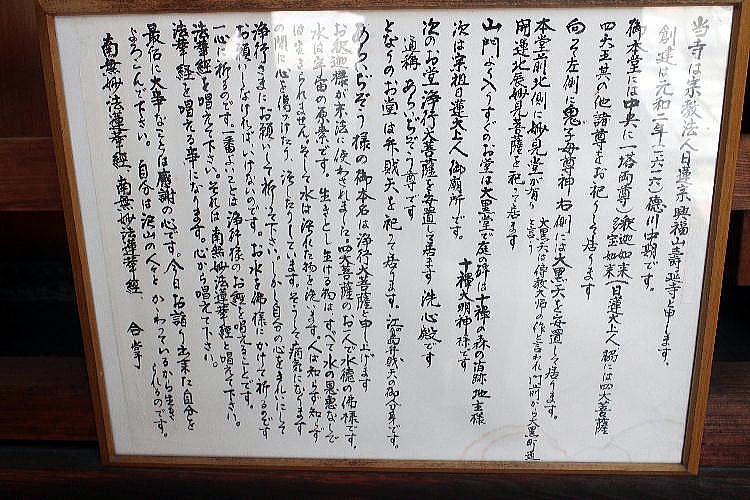 当寺は宗教法人日蓮宗興福山壽延寺と申します。
創建は元和二年(一六一六)徳川中期です。
御本堂には中央に一塔両尊(釈迦如来 多宝如来)日蓮大上人 脇には四大菩薩
四大王其の他諸尊をお祀りして居ります
向って左側に鬼子母尊神 右側には大黒天を安置して居ります。
大黒天は傳教大師の作と言われ門前から大黒町通と言う
本堂前北側に妙見堂が有り
開運北辰妙見菩薩を祀って居ます
山門より入りすぐのお堂は大黒堂で庭の碑は十禅の森の消跡地主様
十禅大明神様です
次は宗祖日蓮大上人御廟所です。
次のお堂浄行大菩薩を安置して居ます 洗心殿です
通称 あらいぢぞう尊です
となりのお堂は弁財天を祀って居ます。江島弁財天の御分身です。
あらいぢぞう様の御本名は浄行大菩薩と申し上げます
お釈迦様が末法に使わされました四大菩薩のお一人で水徳の佛様です。
水は年番の原素です。生きとし生ける物は、すべて水の恩恵なしで
は生きられません。そして水は汚れた物を洗います。人は知らず知らず
の間に心を傷つけたり、汚したりしています。そうして病気になります
浄行さまにお願いして祈って下さい。しかし自分の心をきれいにして
お願いしなければいけないのです。お水を佛様にかけて祈るのです
一心に祈るのです。一番よいことは浄行様のお経を唱えることです。
法華経を唱えて下さい。それは南無妙法蓮華経と唱えて下さい。
法華経を唱える事になります。心から唱えて下さい。
最后に大事なことは感謝の心です。今日お詣り出来た自分を
よろこんで下さい。自分は沢山の人々とかかわっているから生き
られるのです。
南無妙法蓮華経 南無妙法蓮華経 合掌